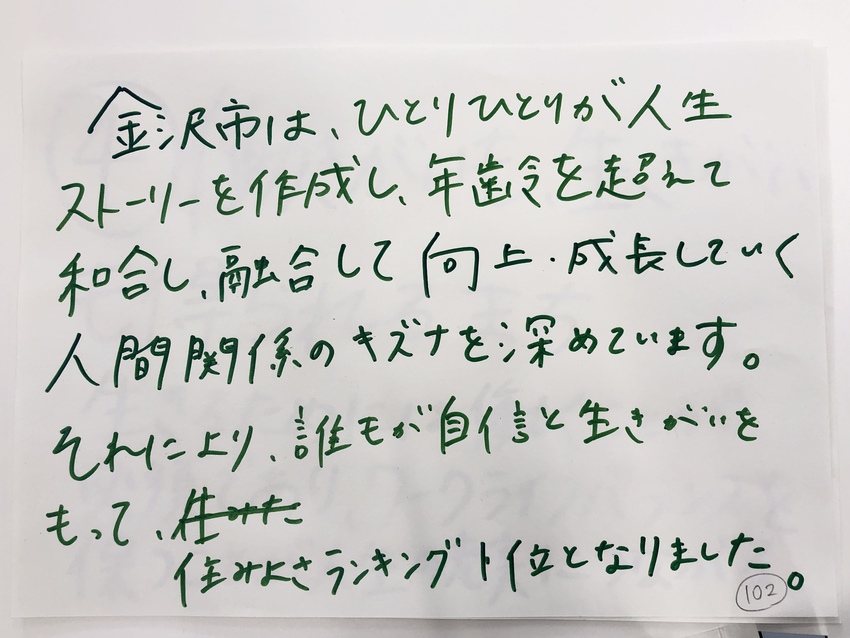 金沢市は、ひとりひとりが人生
ストーリーを作成し、年齢令を超えて
和合し、融合して向上・成長していく
人間関係のキズナを深めています。
それにより、誰もが自信と生きがいを
もって、住みた
住みよさランキング1位となりました。
102